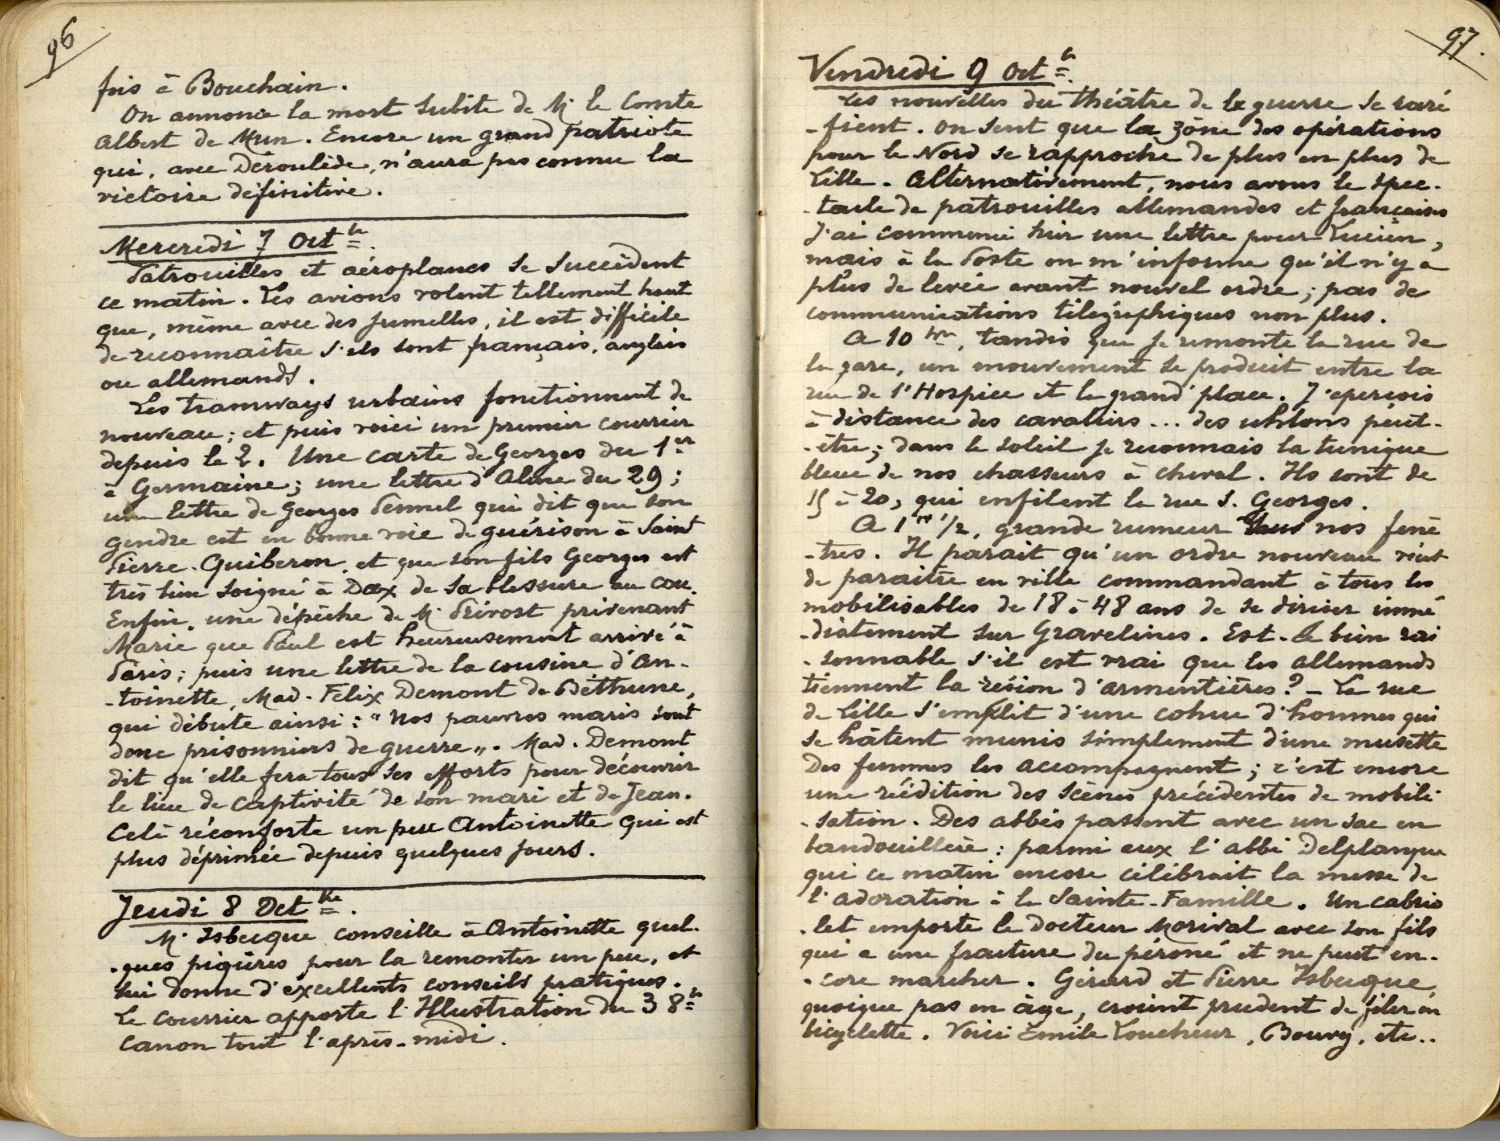 96
fois à Bouchain.
On annonce la mort subite de Mr le Comte
Albert de Mun. Encore un grand patriote
qui, avec Déroulède, n'aura pas connu la
victoire définitive.
Mercredi 7 Octbre.
Patrouilles et aéroplanes se succèdent
ce matin. Les avions volent tellement haut
que, même avec des jumelles, il est difficile
de reconnaître s'ils sont français, anglais
ou allemands.
Les tramways urbains fonctionnent de
nouveau ; et puis voici un premier courrier
depuis le 2. Une carte de Georges du 1er
à Germaine ; une lettre d'Aline du 29 ;
une lettre de Georges Pennel qui dit que son
gendre est en bonne voie de guérison à Saint
Pierre-Quiberon, et que son fils Georges est
très bien soigné à Dax de sa blessure au cou.
Enfin, une dépêche de Mr Prévost prévenant
Marie que Paul est heureusement arrivé à
Paris ; puis une lettre de la cousine d'An-
-toinette, Mad. Félix Demont de Béthune,
qui débute ainsi : "Nos pauvres maris sont
donc prisonniers de guerre". Mad. Demont
dit qu'elle fera tous ses efforts pour découvrir
le lieu de captivité de son mari et de Jean.
Celà réconforte un peu Antoinette qui est
plus déprimée depuis quelques jours.
Jeudi 8 Octbre.
Mr Isbecque conseille à Antoinette quel-
-ques piqûres pour la remonter un peu, et
lui donne d'excellents conseils pratiques.
Le courrier apporte l'Illustration du 3 8bre
Canon tout l'après-midi.
97.
Vendredi 9 Octbre.
Les nouvelles du théâtre de la guerre se raré
-fient. On sent que la zône des opérations
pour le Nord se rapproche de plus en plus de
Lille. Alternativement, nous avons le spec-
-tacle de patrouilles allemandes et françaises
J'ai commencé hier une lettre pour Lucien,
mais à la Poste on m'informe qu'il n'y a
plus de levée avant nouvel ordre ; pas de
communications télégraphiques non plus.
A 10 hres, tandis que je remonte la rue de
la gare, un mouvement se produit entre la
rue de l'Hospice et la grand'place. J'aperçois
à distance des cavaliers... des uhlans peut-
-être ; dans le soleil je reconnais la tunique
bleue de nos chasseurs à cheval. Ils sont de
15 à 20, qui enfilent la rue S. Georges.
A 1re 1/2, grande rumeur sous nos fenê
-tres. Il parait qu'un ordre nouveau vient
de paraître en ville commandant à tous les
mobilisables de 18 à 48 ans de se diriger immé
-diatement sur Gravelines. Est-ce bien rai
-sonnable s'il est vrai que les allemands
tiennent la région d'Armentières ? - La rue
de Lille s'emplit d'une cohue d'hommes qui
se hâtent munis simplement d'une musette
Des femmes les accompagnent ; c'est encore
une réédition des scènes précédentes de mobili
-sation. Des abbés passent avec un sac en
bandouillère : parmi eux l'abbé Delplanque
qui ce matin encore célébrait la messe de
l'adoration à la Sainte-Famille. Un cabrio
-let emporte le docteur Morival avec son fils
qui a une fracture du péroné et ne peut en-
-core marcher. Gérard et Pierre Isbecque,
quoique pas en âge, croient prudent de filer en
bicyclette. Voici Emile Loucheur, Boury, etc..